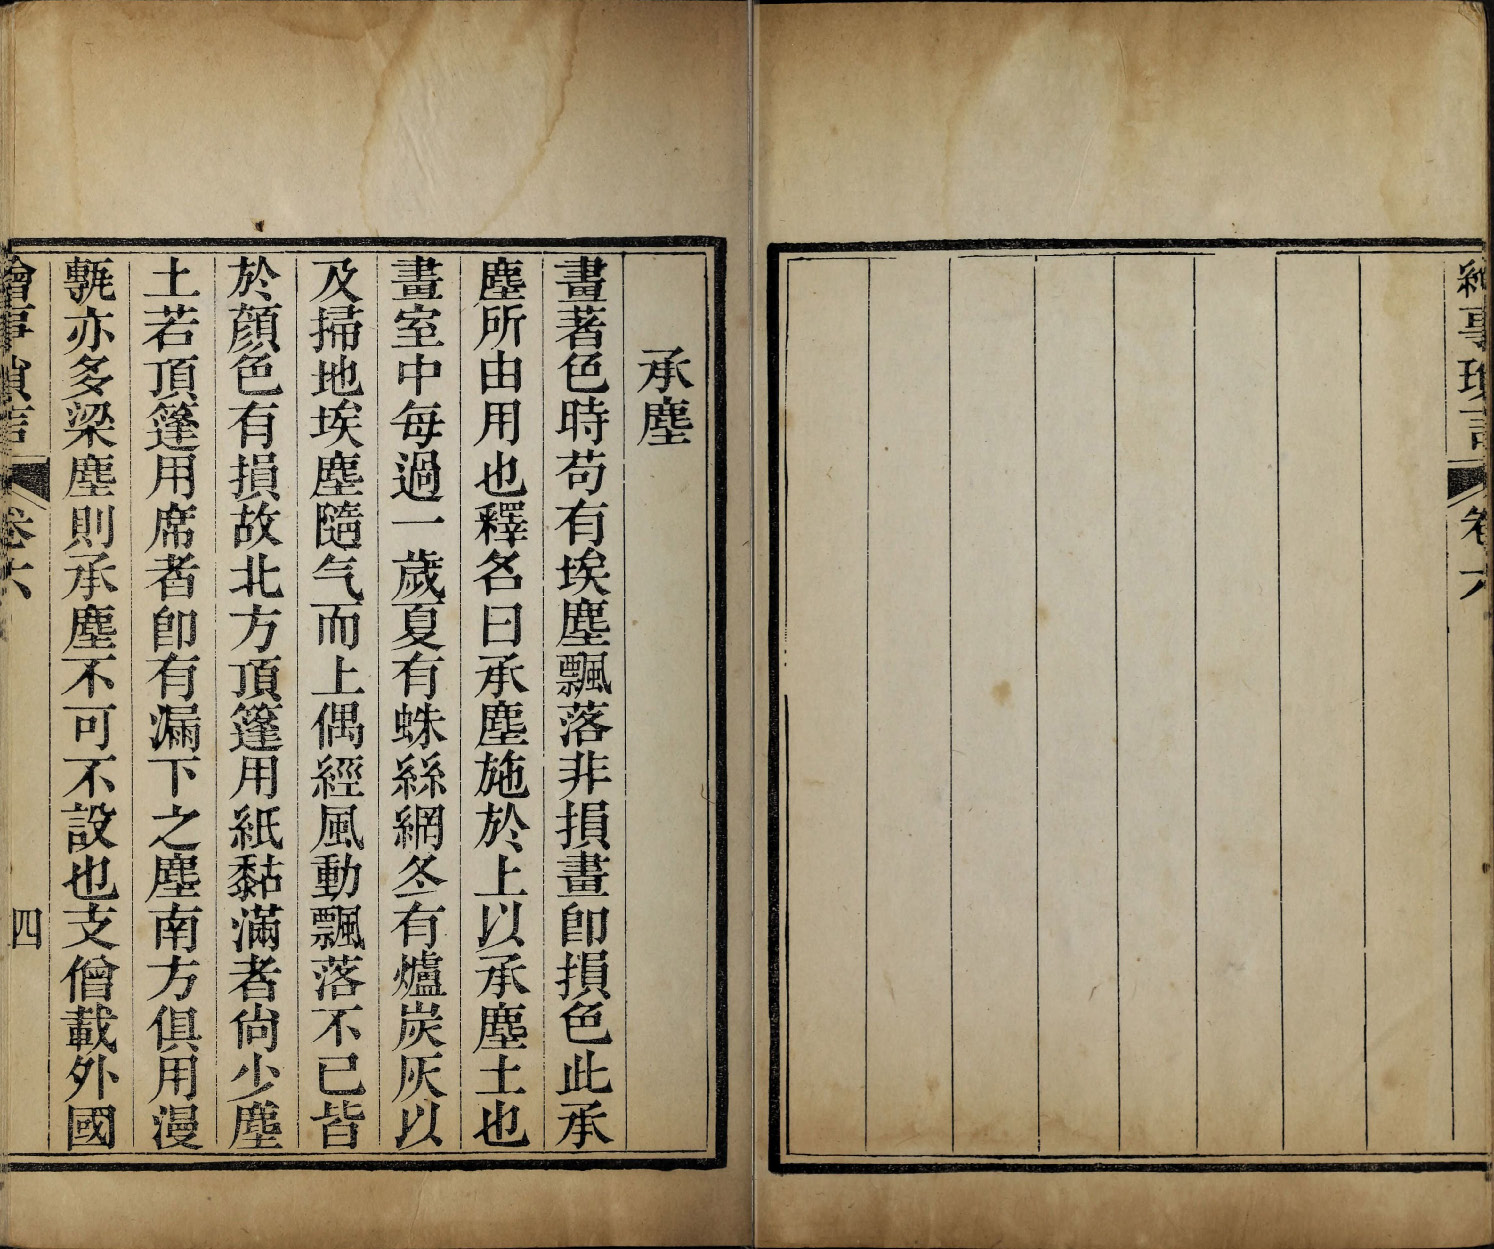 繪事瑣言
卷六
承塵
畫著色時苟有埃塵飄落非損畫卽損色此承
塵所由用也釋名曰承塵施於上以承塵土也
畫室中每過一歲夏有蛛絲網冬有爐炭灰以
及掃地埃塵隨气而上偶經風動飄落不已皆
於顏色有損故北方頂篷用紙黏滿者尙少塵
土若頂篷用席者卽有漏下之塵南方俱用漫
甎亦多梁塵則承塵不可不設也支僧載外國
繪事瑣言
卷六
四